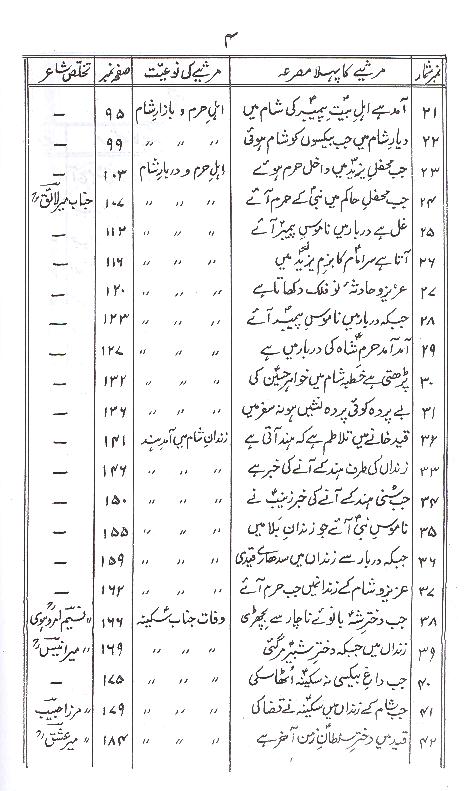 ۴
نمبر شمار مرثیے کا پہلا مصرعہ مرثیے کی نوعیت صفحہ نمبر تخلص شاعر
۲۱ آمد ہے اہلِ بیتِ پیمبرؐ کی شام میں اہلِ حرم و بازارِ شام ۹۵ —
۲۲ دیارِ شام میں جب بیکسوں کو شام ہوئی 〃 〃 〃 ۹۹ —
۲۳ جب محفلِ یزید میں داخل حرم ہوئے اہلِ حرم و دربارِ شام ۱۰۳ —
۲۴ جب محفلِ حاکم میں نبیؐ کے حرم آئے 〃 〃 〃 ۱۰۷ جناب میر لائقؔ
۲۵ غل ہے دربار میں ناموسِ پیمبرؐ آئے 〃 〃 〃 ۱۱۲ —
۲۶ آتا ہے سر امامؑ کا بزمِ یزید میں 〃 〃 〃 ۱۱۶ —
۲۷ عزیزو حادثۂ نو فلک دکھاتا ہے 〃 〃 〃 ۱۲۰ —
۲۸ جبکہ دربار میں ناموسِ پیمبرؐ آئے 〃 〃 〃 ۱۲۳ —
۲۹ آمد آمد حرمِ شاہؑ کی دربار میں ہے 〃 〃 〃 ۱۲۷ —
۳۰ پڑھتی ہے خطبہ شام میں خواہر حسینؑ کی 〃 〃 〃 ۱۳۲ —
۳۱ بے پردہ کوئی پردہ نشیں ہو نہ سفر میں 〃 〃 〃 ۱۳۶ —
۳۲ قید خانے میں تلاطم ہے کہ ہند آتی ہے زندانِ شام میں آمدِ ہند ۱۴۱ —
۳۳ زنداں کی طرف ہند کے آنے کی خبر ہے 〃 〃 〃 ۱۴۶ —
۳۴ جب سنی ہند کے آنے کی خبر زینبؑ نے 〃 〃 〃 ۱۵۰ —
۳۵ ناموسِ نبیؐ آئے جو زندانِ بلا میں 〃 〃 〃 ۱۵۵ —
۳۶ جبکہ دربار سے زنداں میں سدھارے قیدی 〃 〃 〃 ۱۵۹ —
۳۷ عزیزو شام کے زنداں میں جب حرم آئے 〃 〃 〃 ۱۶۲ —
۳۸ جب دخترِ شہؑ بانوئے ناچار سے بچھڑی وفات جناب سکینہؑ ۱۶۶ 〃 نسیم امروہوی
۳۹ زنداں میں جبکہ دخترِ شبیرؑ مر گئی 〃 〃 〃 ۱۶۹ 〃 میر انیسؔ
۴۰ جب داغِ بیکسی نہ سکینہؑ اٹھا سکی 〃 〃 〃 ۱۷۵ —
۴۱ جب شام کے زنداں میں سکینہؑ نے قضا کی 〃 〃 〃 ۱۷۹ 〃 مرزا حبیب
۴۲ قید میں دخترِ سلطانِ زمن آخر ہے 〃 〃 〃 ۱۸۴ 〃 میر عشقؔ